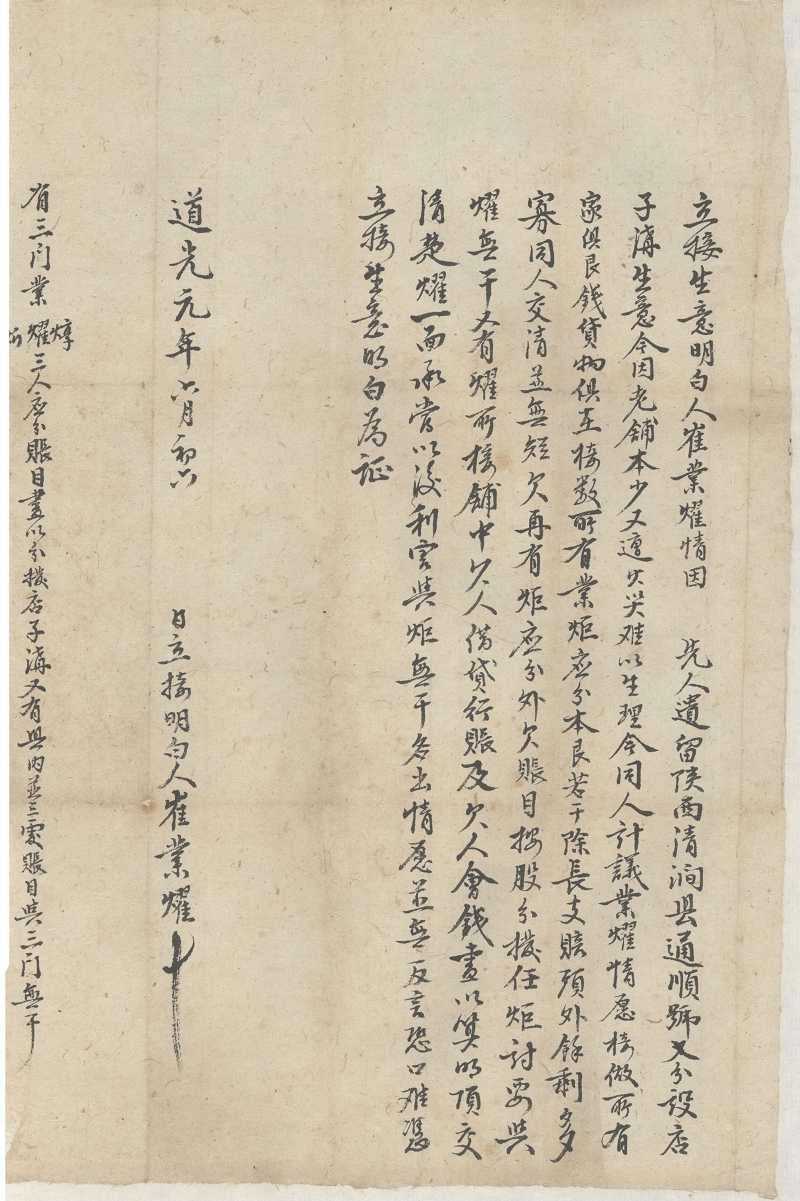 立接生意明白人崔業耀情因　先人遺留陕西清澗县通順號又分設店
子溝生意今因老舖本少又遭火災难以生理今同人計議業耀情愿接做所有
家俱艮錢貨物俱在接数所有業炬应分本艮若干除長支賠預外餘剩多
寡同人交清並無短欠再有炬应分外欠賬目按股分撥任炬討要與
耀無干又有耀所接舖中欠人借貸行賬及欠人會錢盡以算明頂交
清楚耀一面承當以後利害與炬無干各出情愿並無反言恐口难憑
立接生意明白為証
道光元年六月初六
日立接明白人崔業耀十
有三门業焞耀三人应分賬目盡以分撥店子溝又有县内並三處賬目與三门無干